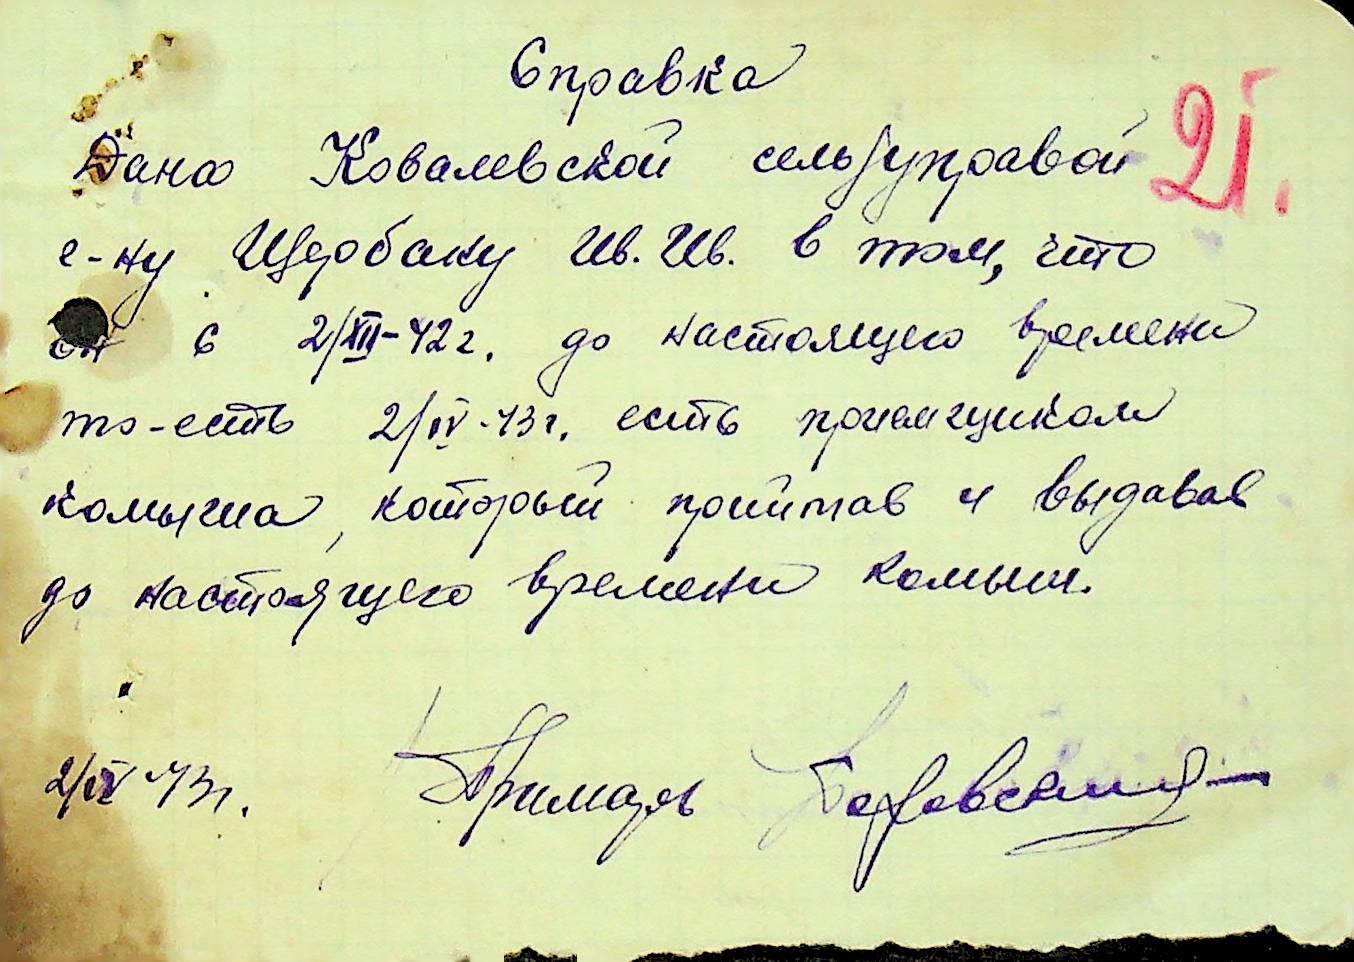 Справка
21.
Дана Ковалевской сель/управой
г-ну Щербаку Ив. Ив. в том, что
он с 2/XII-42г. до настоящего времени
то-есть 2/IV-43г. есть приемщиком
комыша, который приймав и выдавав
до настоящего времени комыш.
2/IV-43г. Примарь